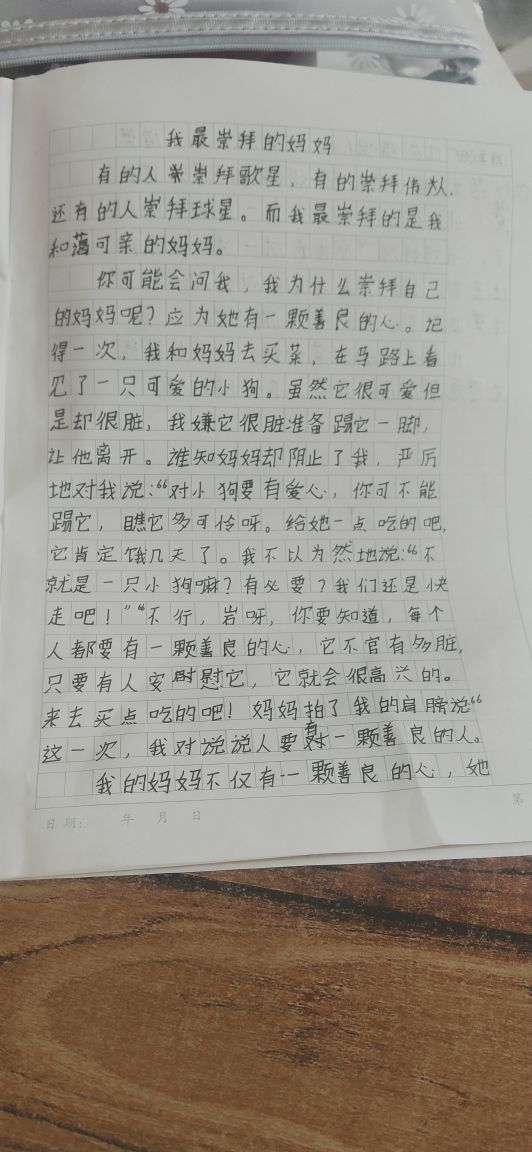 我最崇拜的妈妈
有的人崇拜歌星，有的崇拜伟人，
还有的人崇拜球星。而我最崇拜的是我
和蔼可亲的妈妈。
你可能会问我，我为什么崇拜自己
的妈妈呢？应为她有一颗善良的心。记
得一次，我和妈妈去买菜，在马路上看
见了一只可爱的小狗。虽然它很可爱但
是却很脏，我嫌它很脏准备踢它一脚，
让他离开。谁知妈妈却阴止了我，严厉
地对我说：“对小狗要有爱心，你可不能
踢它，瞧它多可怜呀。给她一点吃的吧，
它肯定饿几天了。我不以为然地说：“不
就是一只小狗嘛？有必要？我们还是快
走吧！”“不行，岩呀，你要知道，每个
人都要有一颗善良的心，它不官有多脏，
只要有人安慰它，它就会很高兴的。
来去买点吃的吧！妈妈拍了我的肩膀说“
这一次，我对说说人要有一颗善良的人。
我的妈妈不仅有一颗善良的心，她
日期：　年　月　日
第